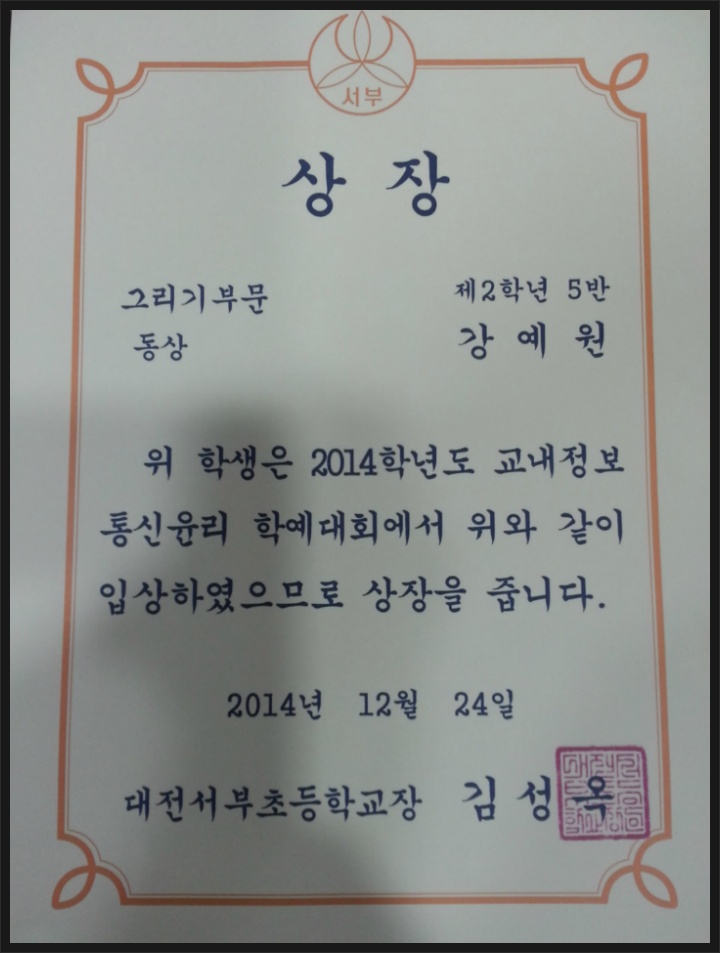 서부
상 장
그리기부문
동상
제2학년 5반
강 예 원
위 학생은 2014학년도 교내정보
통신윤리 학예대회에서 위와 같이
입상하였으므로 상장을 줍니다.
2014년 12월 24일
대전서부초등학교장 김 성 옥